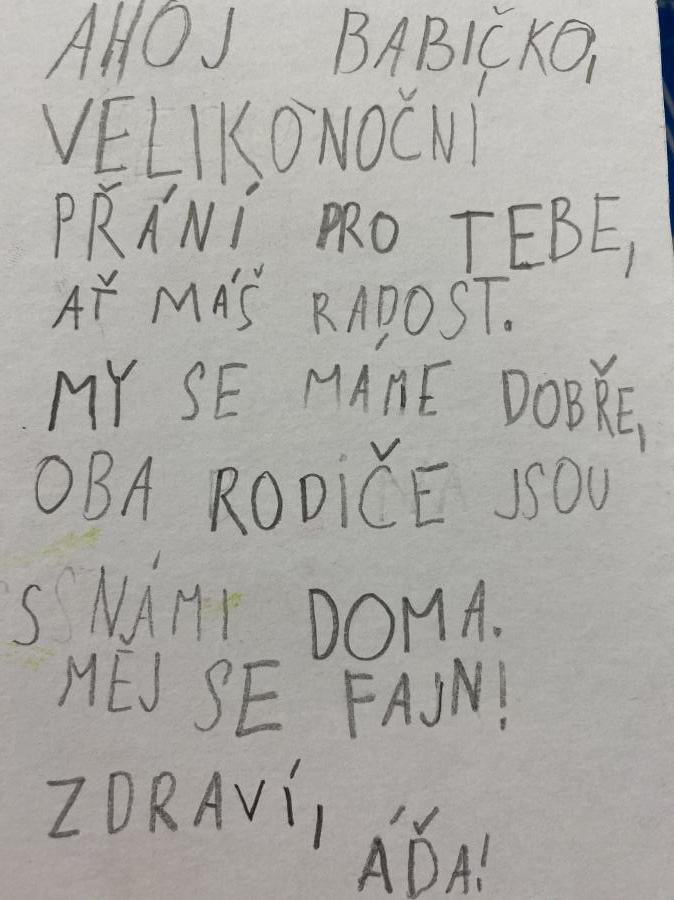 AHOJ BABIČKO,
VELIKONOČNÍ
PŘÁNÍ PRO TEBE,
AŤ MÁŠ RADOST.
MY SE MÁME DOBŘE,
OBA RODIČE JSOU
S NÁMI DOMA.
MĚJ SE FAJN!
ZDRAVÍ,
ÁĎA!